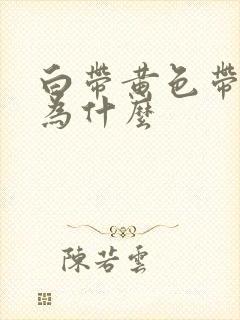 白帶黃色帶
為什麼
陳若雲